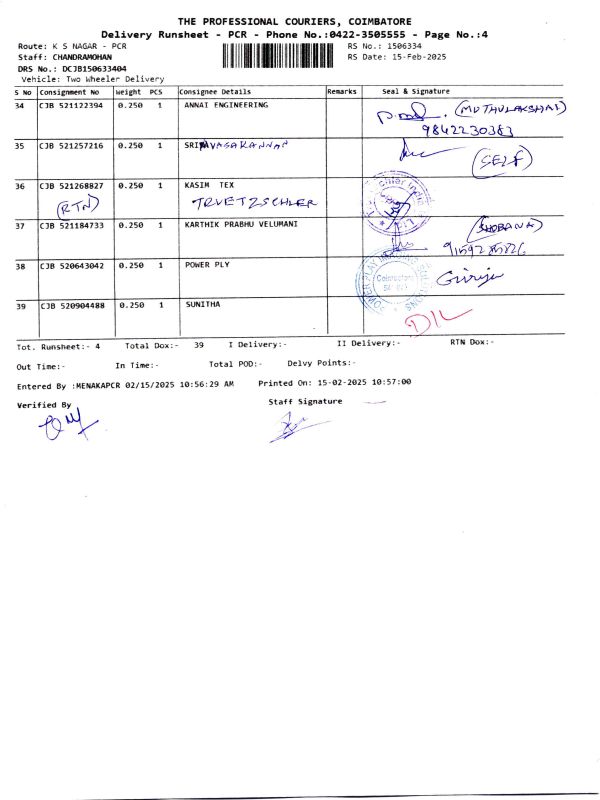 THE PROFESSIONAL COURIERS, COIMBATORE
Delivery Runsheet - PCR - Phone No.:0422-3505555 - Page No.:4
Route: K S NAGAR - PCR RS No.: 1506334
Staff: CHANDRAMOHAN RS Date: 15-Feb-2025
DRS No.: DCJB150633404
Vehicle: Two Wheeler Delivery
S No Consignment No Weight PCS Consignee Details Remarks Seal & Signature
34 CJB 521122394 0.250 1 ANNAI ENGINEERING (MUTHULAKSHMI)
9842230383
35 CJB 521257216 0.250 1 SRI (SELF)
36 CJB 521268827 0.250 1 KASIM TEX
(RTN) TRUETZSCHLER
37 CJB 521184733 0.250 1 KARTHIK PRABHU VELUMANI (SHOBANA)
38 CJB 520643042 0.250 1 POWER PLY Coimbatore Girija
39 CJB 520904488 0.250 1 SUNITHA
D/L
Tot. Runsheet:- 4 Total Dox:- 39 I Delivery:- II Delivery:- RTN Dox:-
Out Time:- In Time:- Total POD:- Delvy Points:-
Entered By :MENAKAPCR 02/15/2025 10:56:29 AM Printed On: 15-02-2025 10:57:00
Verified By Staff Signature